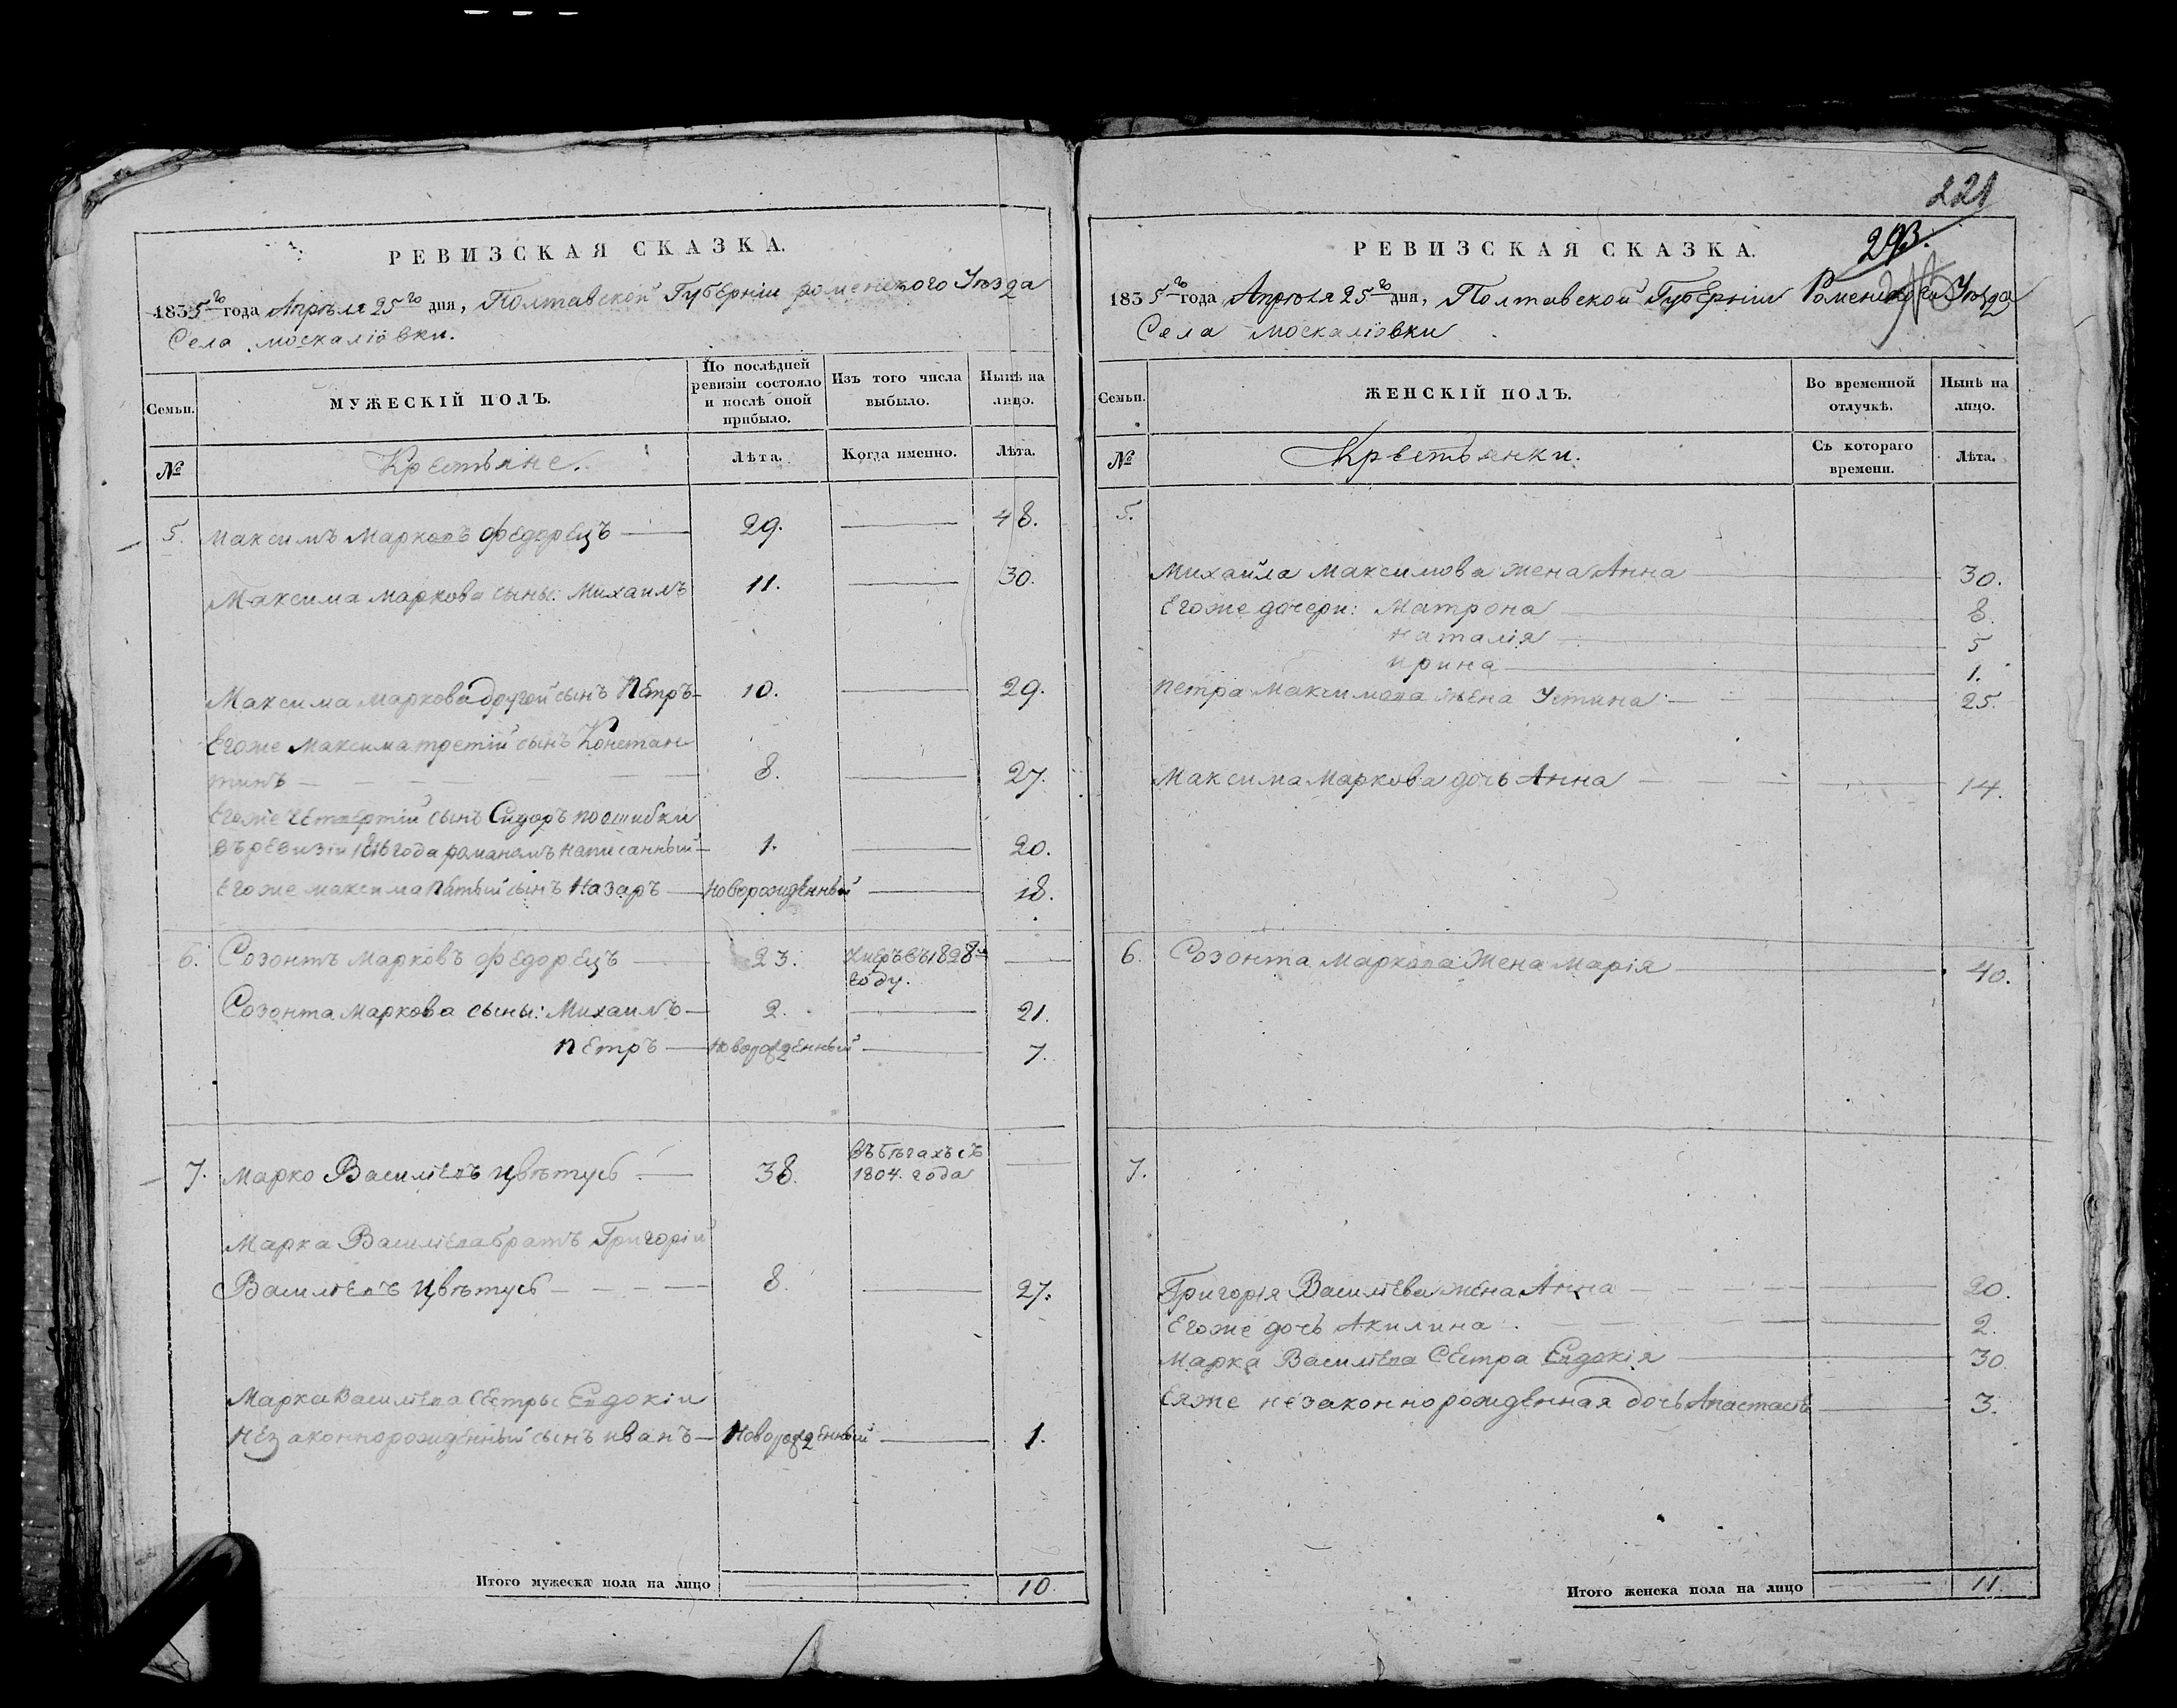 РЕВИЗСКАЯ СКАЗКА.
1835го года Апрѣля 25го дня, Полтавской Губерніи роменского Уѣзда
Села москаліовки.
Семьи. МУЖЕСКІЙ ПОЛЪ. По послѣдней ревизіи состояло и послѣ оной прибыло. Изъ того числа выбыло. Нынѣ на лицо.
№ Крестьяне. Лѣта. Когда именно. Лѣта.
5. максимъ Марковъ федорецъ 29. 48.
Максима маркова сыны: Михаилъ 11. 30.
Максима маркова другой сынъ Петръ 10. 29.
Егоже максима третій сынъ Констан
тинъ 8. 27.
Егоже четвертій сынъ Сидоръ поошибки
въ ревизіи 1816 года романомъ написанный 1. 20.
Егоже максима пятый сынъ Назаръ новорожденный 18.
6. Созонтъ марковъ федорецъ 23. Умеръ въ 1828м
году.
Созонта маркова сыны: Михаилъ 2. 21.
Петръ новорожденный 7.
7. марко Василіевъ Цвѣтусь 38. въ бѣгахъ съ
1804. года
Марка Василіева братъ Григорій
Василіевъ Цвѣтусь 8. 27.
Марка Василіева сестры Евдокіи
незаконнорожденный сынъ иванъ Новорожденный 1.
Итого мужеска пола на лицо 10.
221
293.
РЕВИЗСКАЯ СКАЗКА.
1835го года Апрѣля 25го дня, Полтавской Губерніи Роменского Уѣзда
Села москаліовки
Семьи. ЖЕНСКІЙ ПОЛЪ. Во временной отлучкѣ. Нынѣ на лицо.
№ Крестьянки. Съ котораго времени. Лѣта.
5.
Михайла максимова жена Анна 30.
Егоже дочери: Матрона 8.
наталія 5
ирина 1.
петра максимова жена Устина 25.
Максима Маркова дочь Анна 14.
6. Созонта маркова жена марія 40.
7.
Григорія Василіева жена Анна 20.
Егоже дочь Акилина 2.
Марка Василіева сестра Евдокія 30.
Еяже незаконнорожденная дочь 3.
Итого женска пола на лицо 11.